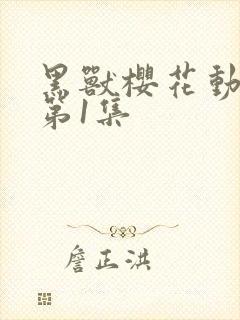 黑獸櫻花動
第1集
詹正洪